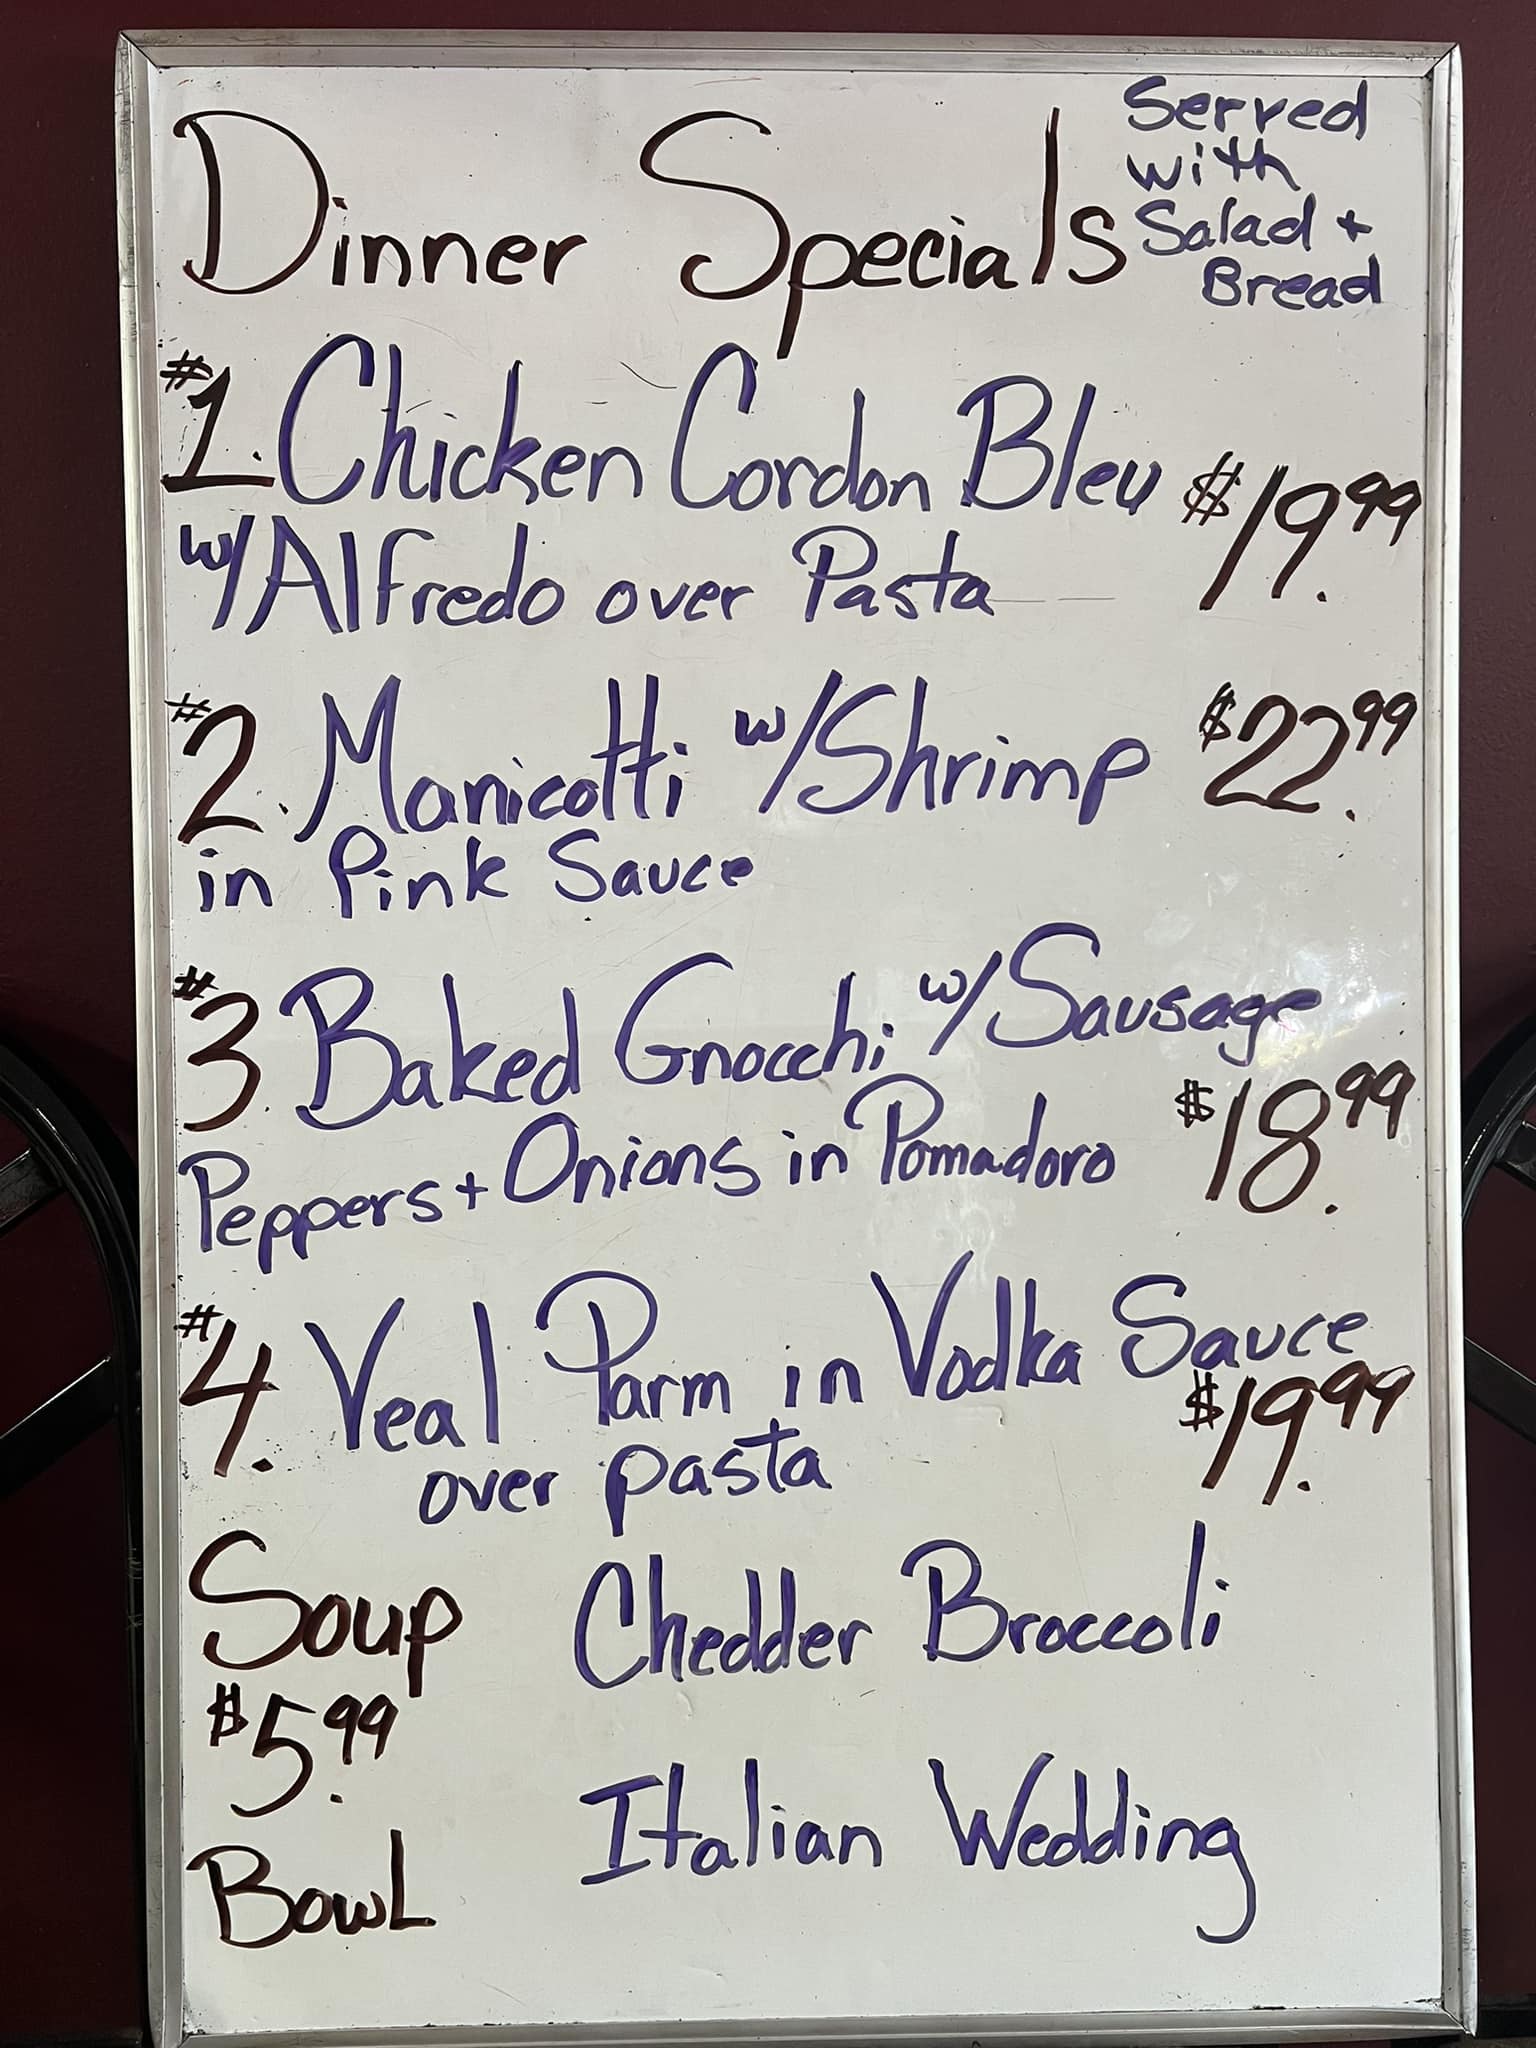 Dinner Specials
Served
with
Salad +
Bread
#1. Chicken Cordon Bleu $19.99
w/Alfredo over Pasta
#2. Manicotti w/Shrimp $22.99
in Pink Sauce
#3. Baked Gnocchi w/Sausage
Peppers + Onions in Pomadoro $18.99
#4. Veal Parm in Vodka Sauce
over pasta $19.99
Soup
$5.99
Bowl
Chedder Broccoli
Italian Wedding